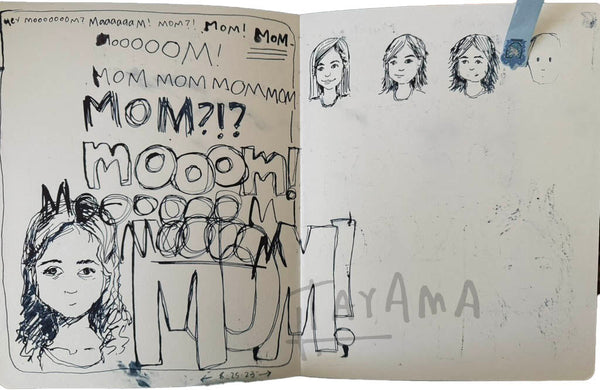 Hey Moooooom? Moooooom! Mom?! Mom! Mom.
Mooooom!
Mom Mom Mommom
MOM?!?
MOOOM!
Mooooooom
Mooooom
MOM!
HAYAMA
6.25.23